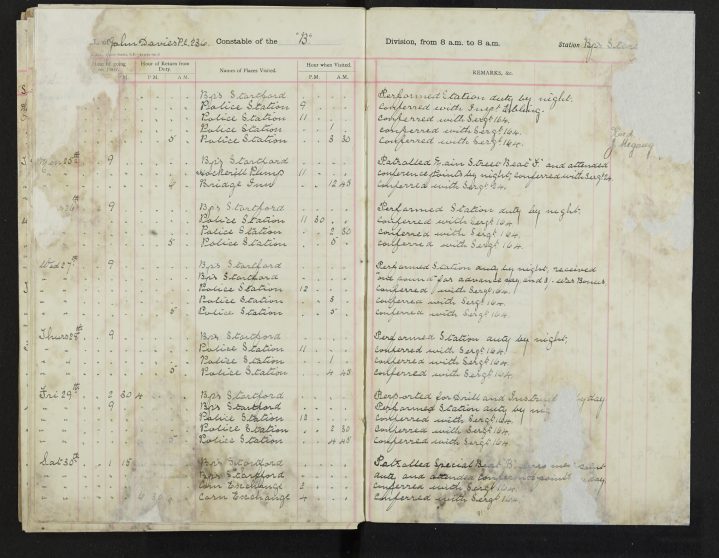 John Davies P.C. 236. Constable of the "B" Division, from 8 a.m. to 8 a.m. Station Bp's Stort
Hour of going on Duty. Hour of Return from Duty. Names of Places Visited. Hour when Visited. REMARKS, &c.
P.M. P.M. A.M. P.M. A.M.
Bp's Stortford Performed Station duty by night.
Police Station 9 Conferred with Inspt
Police Station 11 Conferred with Sergt 164.
Police Station 1 Conferred with Sergt 164.
5 Police Station 3 30 Conferred with Sergt 164.
Mon 25th 9 Bp's Stortford Patrolled Main Street Beat "F" and attended
Hockerill Pump 11 conference points by night; conferred with Sergt 24.
Bridge Inn 12 45 Conferred with Sergt 24.
26th 9 Bp's Stortford Performed Station duty by night.
Police Station 11 30 Conferred with Sergt 164.
Police Station 2 30 Conferred with Sergt 164.
5 Police Station 5 Conferred with Sergt 164.
Wed 27th 9 Bp's Stortford Performed Station duty by night, received
Bp's Stortford one pound for advance pay and War Bonus.
Police Station 12 Conferred with Sergt 164.
Police Station 3 Conferred with Sergt 164.
5 Police Station 5 Conferred with Sergt 164.
Thurs 28th 9 Bp's Stortford Performed Station duty by night,
Police Station 11 Conferred with Sergt 164.
Police Station 1 Conferred with Sergt 164.
5 Police Station 4 45 Conferred with Sergt 164.
Fri 29th 2 30 4 Bp's Stortford Reported for Drill and Instruct by day
9 Bp's Stortford Performed Station duty by nig
Police Station 12 Conferred with Sergt 164.
Police Station 2 30 Conferred with Sergt 164.
5 Police Station 4 45 Conferred with Sergt 164.
Sat 30th 1 15 Bp's Stortford Patrolled Special Beat "B"
Bp's Stortford duty and attended conference points day.
Corn Exchange 2 Conferred with Sergt 164.
4 30 Corn Exchange 4 Conferred with Sergt 164.